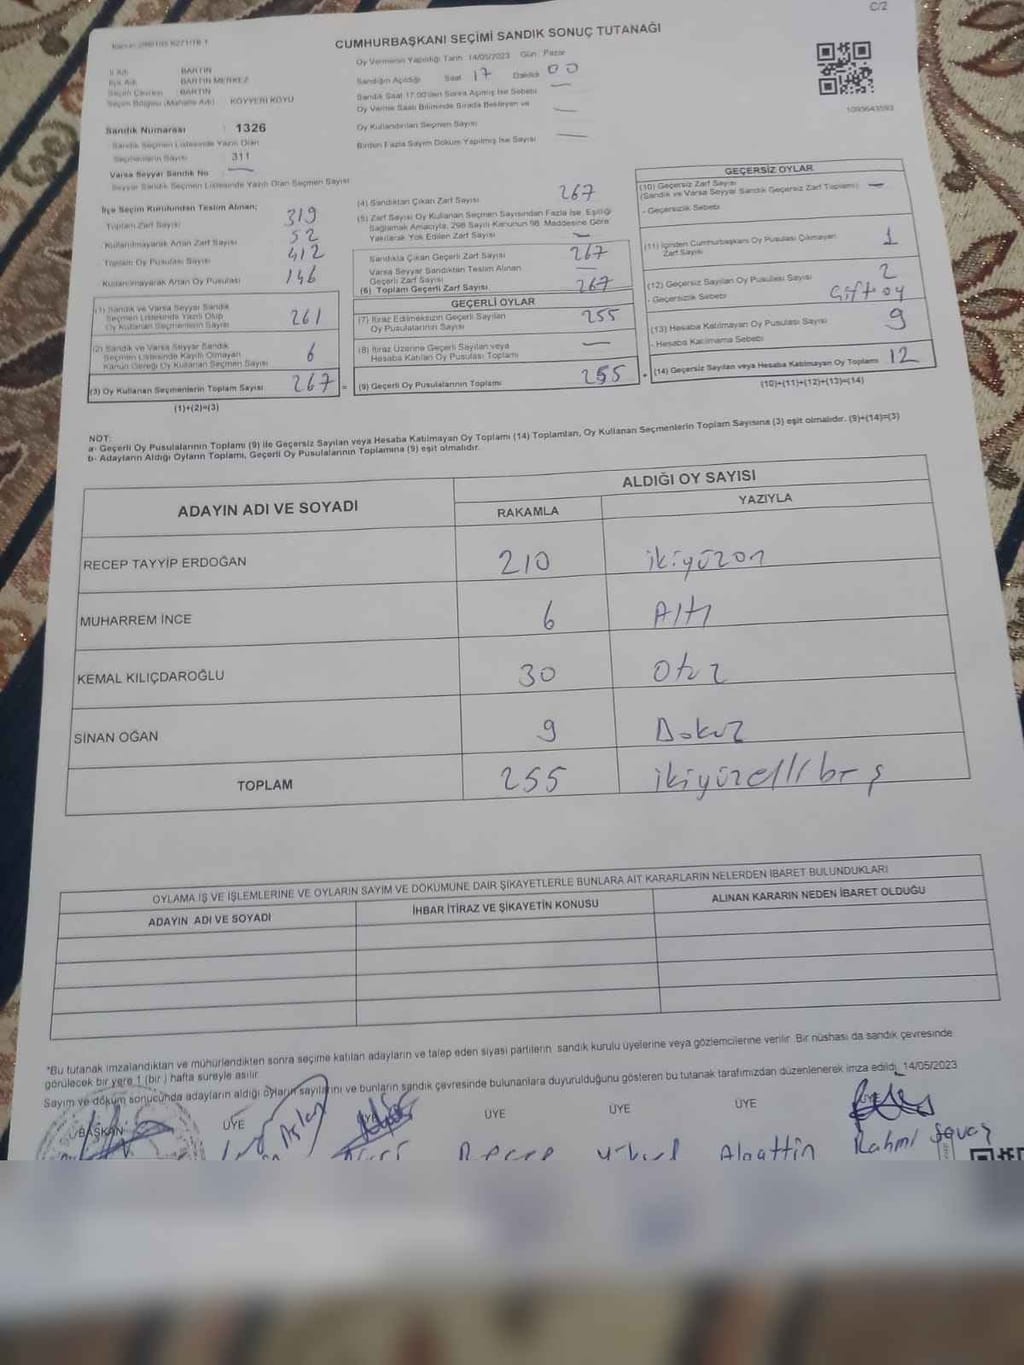 C/2
CUMHURBAŞKANI SEÇİMİ SANDIK SONUÇ TUTANAĞI
1095643593
İl Adı : BARTIN
İlçe Adı : BARTIN MERKEZ
Seçim Çevresi : BARTIN
Seçim Bölgesi (Mahalle Adı) : KÖYYERİ KÖYÜ
Sandık Numarası : 1326
Sandık Seçmen Listesinde Yazılı Olan
Seçmenlerin Sayısı : 311
Varsa Seyyar Sandık No : —
Seyyar Sandık Seçmen Listesinde Yazılı Olan Seçmen Sayısı
Oy Vermenin Yapıldığı Tarih: 14/05/2023 Gün: Pazar
Sandığın Açıldığı Saat 17 Dakika 00
Sandık Saat 17:00'den Sonra Açılmış İse Sebebi —
Oy Verme Saati Bitiminde Sırada Bekleyen ve
Oy Kullandırılan Seçmen Sayısı —
Birden Fazla Sayım Döküm Yapılmış İse Sayısı —
İlçe Seçim Kurulundan Teslim Alınan;
Toplam Zarf Sayısı 319
Kullanılmayarak Artan Zarf Sayısı 52
Toplam Oy Pusulası Sayısı 412
Kullanılmayarak Artan Oy Pusulası 146
(1) Sandık ve Varsa Seyyar Sandık
Seçmen Listesinde Yazılı Olup
Oy Kullanan Seçmenlerin Sayısı 261
(2) Sandık ve Varsa Seyyar Sandık
Seçmen Listesinde Kayıtlı Olmayan
Kanun Gereği Oy Kullanan Seçmen Sayısı 6
(3) Oy Kullanan Seçmenlerin Toplam Sayısı 267 =
(1)+(2)=(3)
(4) Sandıktan Çıkan Zarf Sayısı 267
(5) Zarf Sayısı Oy Kullanan Seçmen Sayısından Fazla İse, Eşitliği
Sağlamak Amacıyla, 298 Sayılı Kanunun 98. Maddesine Göre
Yakılarak Yok Edilen Zarf Sayısı —
Sandıkta Çıkan Geçerli Zarf Sayısı 267
Varsa Seyyar Sandıktan Teslim Alınan
Geçerli Zarf Sayısı —
(6) Toplam Geçerli Zarf Sayısı 267
GEÇERLİ OYLAR
(7) İtiraz Edilmeksizin Geçerli Sayılan
Oy Pusulalarının Sayısı 255
(8) İtiraz Üzerine Geçerli Sayılan veya
Hesaba Katılan Oy Pusulası Toplamı —
(9) Geçerli Oy Pusulalarının Toplamı 255 +
GEÇERSİZ OYLAR
(10) Geçersiz Zarf Sayısı
(Sandık ve Varsa Seyyar Sandık Geçersiz Zarf Toplamı) —
- Geçersizlik Sebebi
(11) İçinden Cumhurbaşkanı Oy Pusulası Çıkmayan
Zarf Sayısı 1
(12) Geçersiz Sayılan Oy Pusulası Sayısı 2
- Geçersizlik Sebebi Çift oy
(13) Hesaba Katılmayan Oy Pusulası Sayısı 9
- Hesaba Katılmama Sebebi
(14) Geçersiz Sayılan veya Hesaba Katılmayan Oy Toplamı 12
(10)+(11)+(12)+(13)=(14)
NOT:
a- Geçerli Oy Pusulalarının Toplamı (9) ile Geçersiz Sayılan veya Hesaba Katılmayan Oy Toplamı (14) Toplamları, Oy Kullanan Seçmenlerin Toplam Sayısına (3) eşit olmalıdır. (9)+(14)=(3)
b- Adayların Aldığı Oyların Toplamı, Geçerli Oy Pusulalarının Toplamına (9) eşit olmalıdır.
ADAYIN ADI VE SOYADI ALDIĞI OY SAYISI
RAKAMLA YAZIYLA
RECEP TAYYİP ERDOĞAN 210 ikiyüzon
MUHARREM İNCE 6 Altı
KEMAL KILIÇDAROĞLU 30 Otuz
SİNAN OĞAN 9 Dokuz
TOPLAM 255 ikiyüzellibeş
OYLAMA İŞ VE İŞLEMLERİNE VE OYLARIN SAYIM VE DÖKÜMÜNE DAİR ŞİKAYETLERLE BUNLARA AİT KARARLARIN NELERDEN İBARET BULUNDUKLARI
ADAYIN ADI VE SOYADI İHBAR İTİRAZ VE ŞİKAYETİN KONUSU ALINAN KARARIN NEDEN İBARET OLDUĞU
*Bu tutanak imzalandıktan ve mühürlendikten sonra seçime katılan adayların ve talep eden siyasi partilerin sandık kurulu üyelerine veya gözlemcilerine verilir. Bir nüshası da sandık çevresinde
görülecek bir yere 1 (bir) hafta süreyle asılır.
Sayım ve döküm sonucunda adayların aldığı oyların sayılarını ve bunların sandık çevresinde bulunanlara duyurulduğunu gösteren bu tutanak tarafımızdan düzenlenerek imza edildi. 14/05/2023
BAŞKAN ÜYE ÜYE ÜYE ÜYE ÜYE ÜYE
Aslan Recep Alaattin Rahmi Savaş